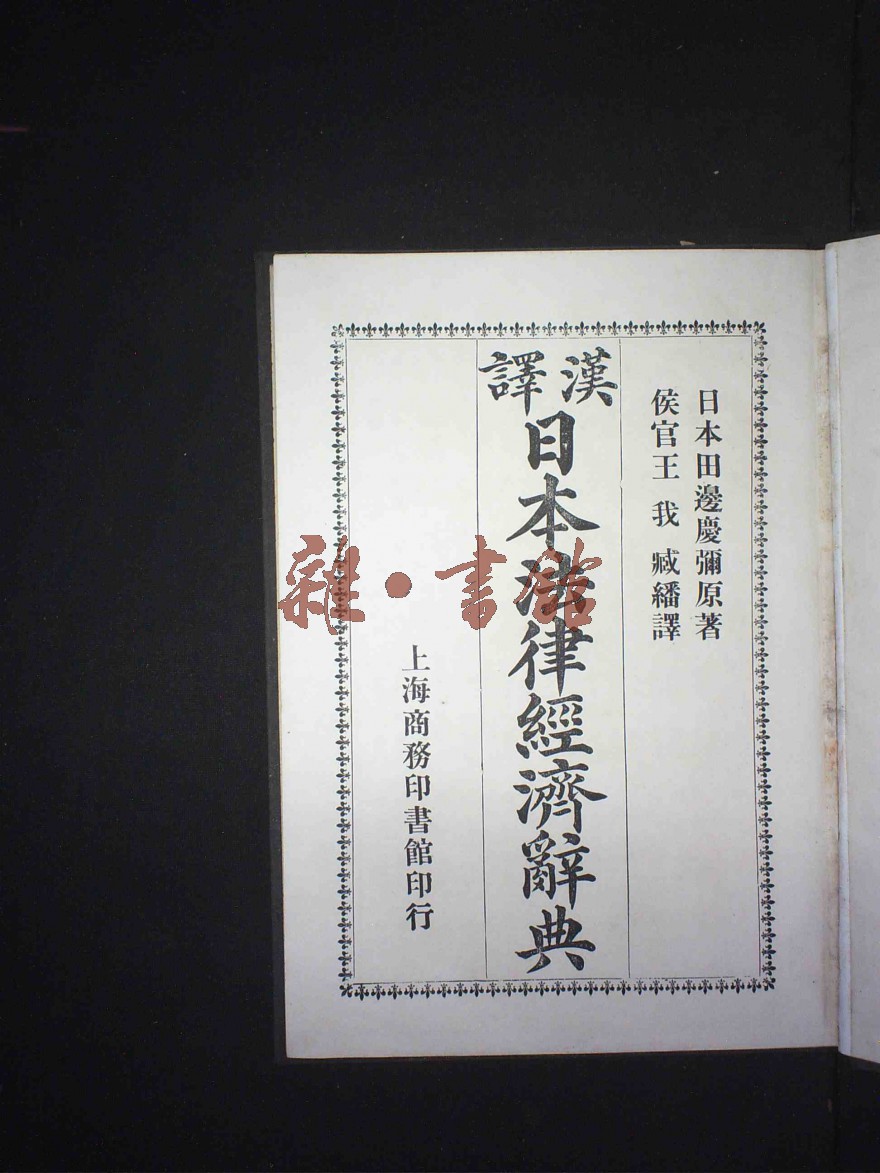 日本田邊慶彌原著
侯官王 我 臧繙譯
漢譯
日本法律經濟辭典
上海商務印書館印行
雜·書館